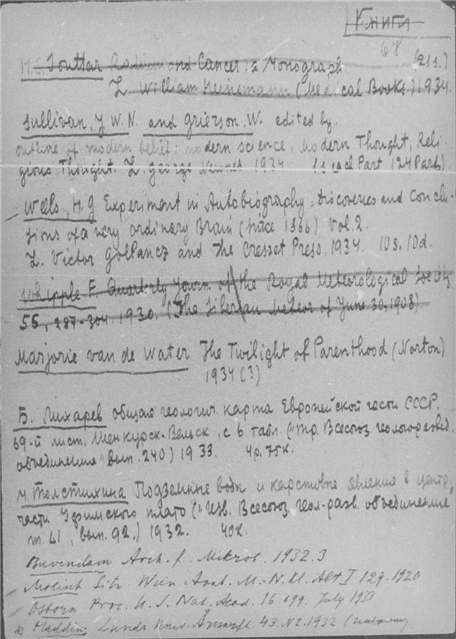 Книга
68
H.S. Souttar Radium and Cancer: a Monograph (21s.)
L. William Heinemann (Medical Books) 1934.
Sullivan, J W.N. and Grierson W. edited by
outline of modern belief: modern science, Modern Thought, Reli-
gious Thought. L. George Newnes 1934 1s each Part (24 Parts)
Wells, H.G Experiment in Autobiography; Discoveries and Conclu-
sions of a very ordinary Brain (since 1866) Vol. 2.
L. Victor Gollancz and The Cresset Press, 1934. 10s. 10d.
Whipple F. Quarterly Journ of the Royal Meteorological Society
56, 287-304. 1930. (The Siberian Meteor of June 30, 1908)
Marjorie van de Water The Twilight of Parenthood (Norton)
1934 (?)
Б. Лихарев общая геологич. карта Европейской части СССР.
69-й лист. Шенкурск-Вельск, с 6 табл. ("Тр. Всесоюз геологоразвед.
объединения" вып. 240) 1933. 4р. 75к.
М. Толстихина Подземные воды и карстовые явления в центр.
части Уфимского плато ("Изв. Всесоюз. геол-разв. объединения
т. 41, вып. 92.) 1932. 40к.
Bavendam Arch. f. Mikrob. 1932. 3
Molisch Sitz Wien. Akad. M.-N. Kl. Abt I 129. 1920
Osborn Proc. U.S. Nat. Acad. 16 699. July
Lunds Univ. Årsskr. 43. N2. 1932